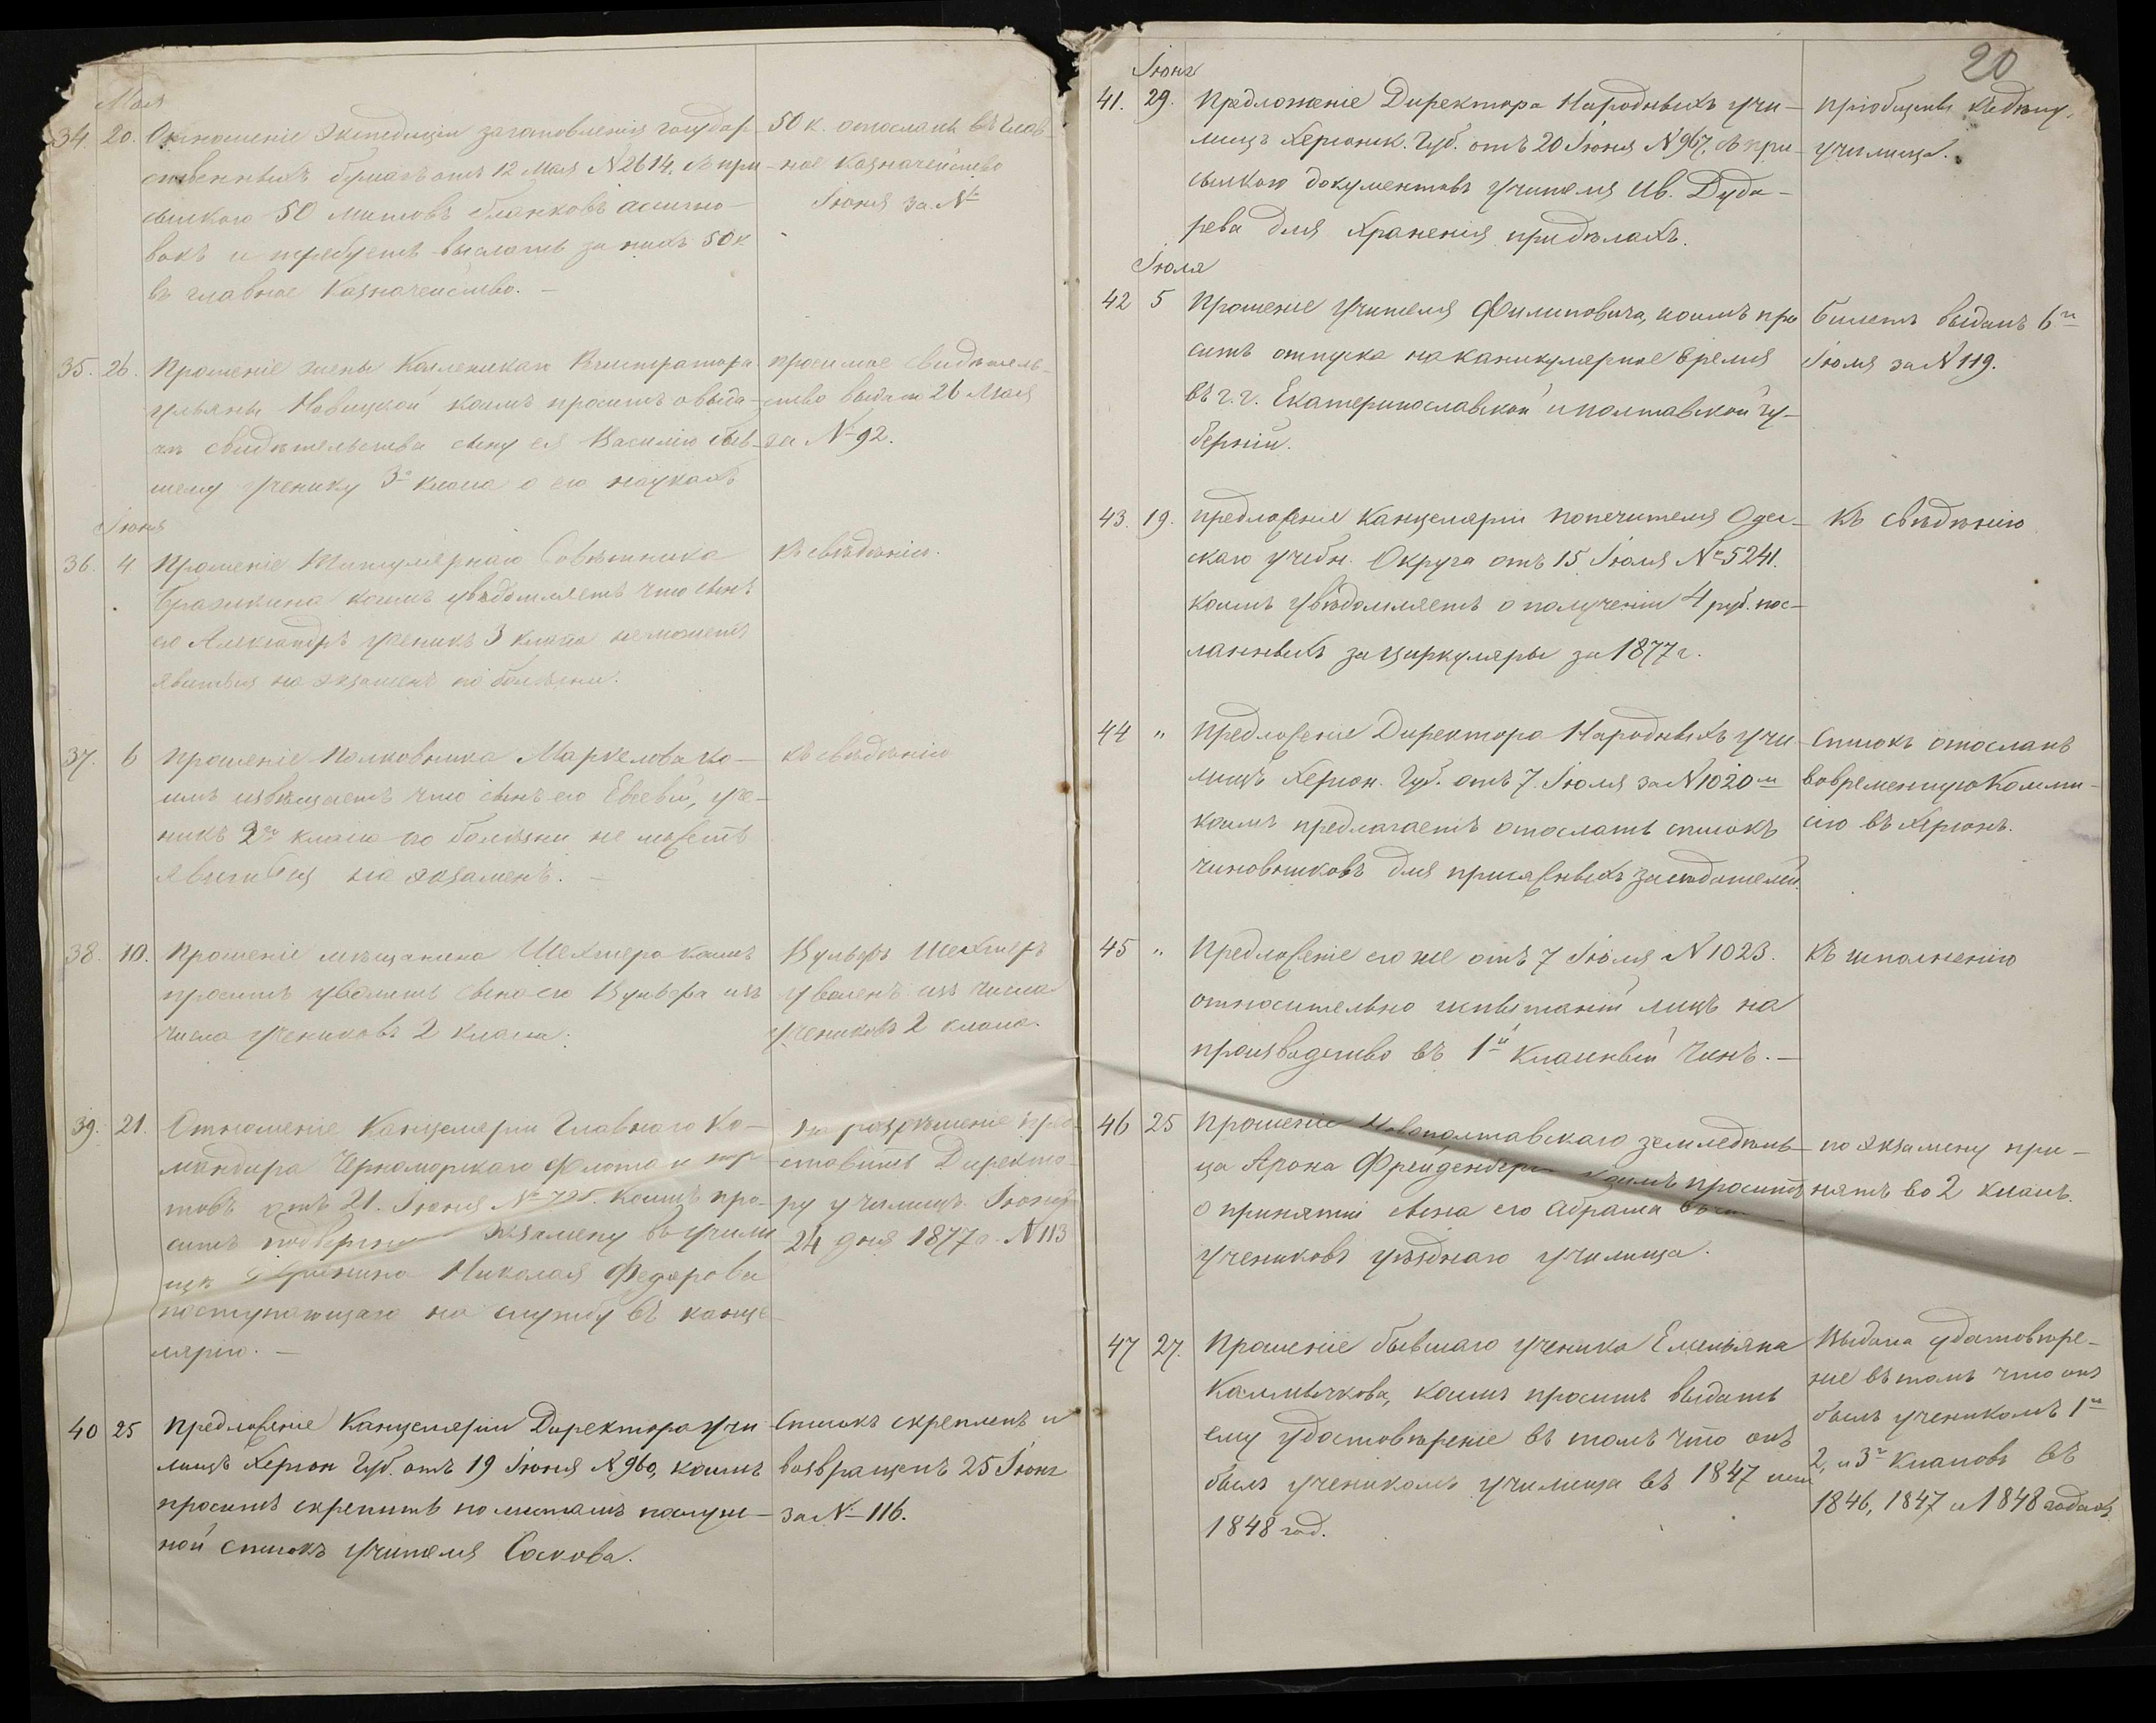 Мая
34. 20. Отношеніе Экспедиціи заготовленія государ
ственныхъ бумагъ отъ 12 Мая №2614, съ при
сылкою 50 листовъ бланковъ ассигно-
вокъ и требуетъ выслать за нихъ 50 к
въ главное Казначейство. —
50 к. отосланы въ Глав-
ное Казначейство
Іюня за №
35. 26. Прошеніе жены Коллежскаго Регистратора
Ульяны Новицкой коимъ проситъ о выда-
чѣ свидѣтельства сыну ея Василію быв-
шему ученику 3го класса о его наукахъ
просимое свидѣтель-
ство выдано 26 Мая
за № 92.
Іюня
36. 4. Прошеніе Титулярнаго Совѣтника
Бражкина коимъ увѣдомляетъ что сынъ
его Александръ ученикъ 3 класса не можетъ
явиться на экзаменъ по болѣзни.
Къ свѣдѣнію.
37. 6 Прошеніе Полковника Маркелова ко-
имъ извѣщаетъ что сынъ его Евсевій, уче-
никъ 2го класса по болѣзни не можетъ
явиться на экзаменъ. —
Къ свѣдѣнію
38. 10. Прошеніе мѣщанина Шехтера коимъ
проситъ уволить сына его Вульфа изъ
числа учениковъ 2 класса.
Вульфъ Шехтеръ
уволенъ изъ числа
учениковъ 2 класса.
39. 21. Отношеніе Канцеляріи Главнаго Ко-
мандира Черноморскаго Флота и пор-
товъ отъ 21. Іюня № 795. коимъ про-
ситъ экзамену въ учили
щѣ Николая Федорова
поступающаго на службу въ канце-
лярію. —
На разрѣшеніе пред
ставить Директо-
ру училищъ. Іюня
24 дня 1877 г. № 113
40 25 Предложеніе Канцеляріи Директора Учи
лищъ Херсон Губ. отъ 19 Іюня № 960, коимъ
проситъ скрепить по листамъ послуж-
ной списокъ Учителя Соскова.
Списокъ скрепленъ и
возвращенъ 25 Іюня
за № 116.
20
Іюня
41. 29. Предложеніе Директора Народныхъ Учи-
лищъ Херсонск. Губ. отъ 20 Іюня № 967, съ при-
сылкою документовъ Учителя Ив. Дуда-
рева для храненія при дѣлахъ.
Пріобщить къ дѣлу,
училища.
Іюля
42 5 Прошеніе Учителя Филиповича, коимъ про
ситъ отпуска на каникулярное время
въ г.г. Екатеринославской и Полтавской гу-
берніи.
Билетъ выданъ 6го
Іюля за № 119.
43. 19. Предложеніе Канцеляріи Попечителя Одес-
скаго учебн. Округа отъ 15 Іюля № 5241.
коимъ увѣдомляетъ о полученіи 4 руб. пос-
ланныхъ за циркуляры за 1877 г.
Къ свѣдѣнію
44 " Предложеніе Директора Народныхъ Учи-
лищъ Херсон. Губ. отъ 7 Іюля за № 1020м
коимъ предлагаетъ отослать списокъ
чиновниковъ для присяжныхъ засѣдателей.
Списокъ отосланъ
вовременную Комми-
сію въ Херсонъ.
45 " Предложеніе его же отъ 7 Іюля № 1023.
относительно испытаній лицъ на
производство въ 1й классный чинъ. —
Къ исполненію
46 25 Прошеніе Новополтавскаго земледѣль-
ца Арона Фрейденберга коимъ проситъ
о принятіи сына его Абрама
учениковъ уѣзднаго училища.
по экзамену при-
нятъ во 2 классъ.
47 27. Прошеніе бывшаго ученика Емельяна
Калмычкова, коимъ проситъ выдать
ему удостовѣреніе въ томъ что онъ
былъ ученикомъ училища въ 1847 или
1848 год.
Выдана удостовѣре-
ніе въ томъ что онъ
былъ ученикомъ 1го
2, и 3го классовъ въ
1846, 1847 и 1848 годахъ